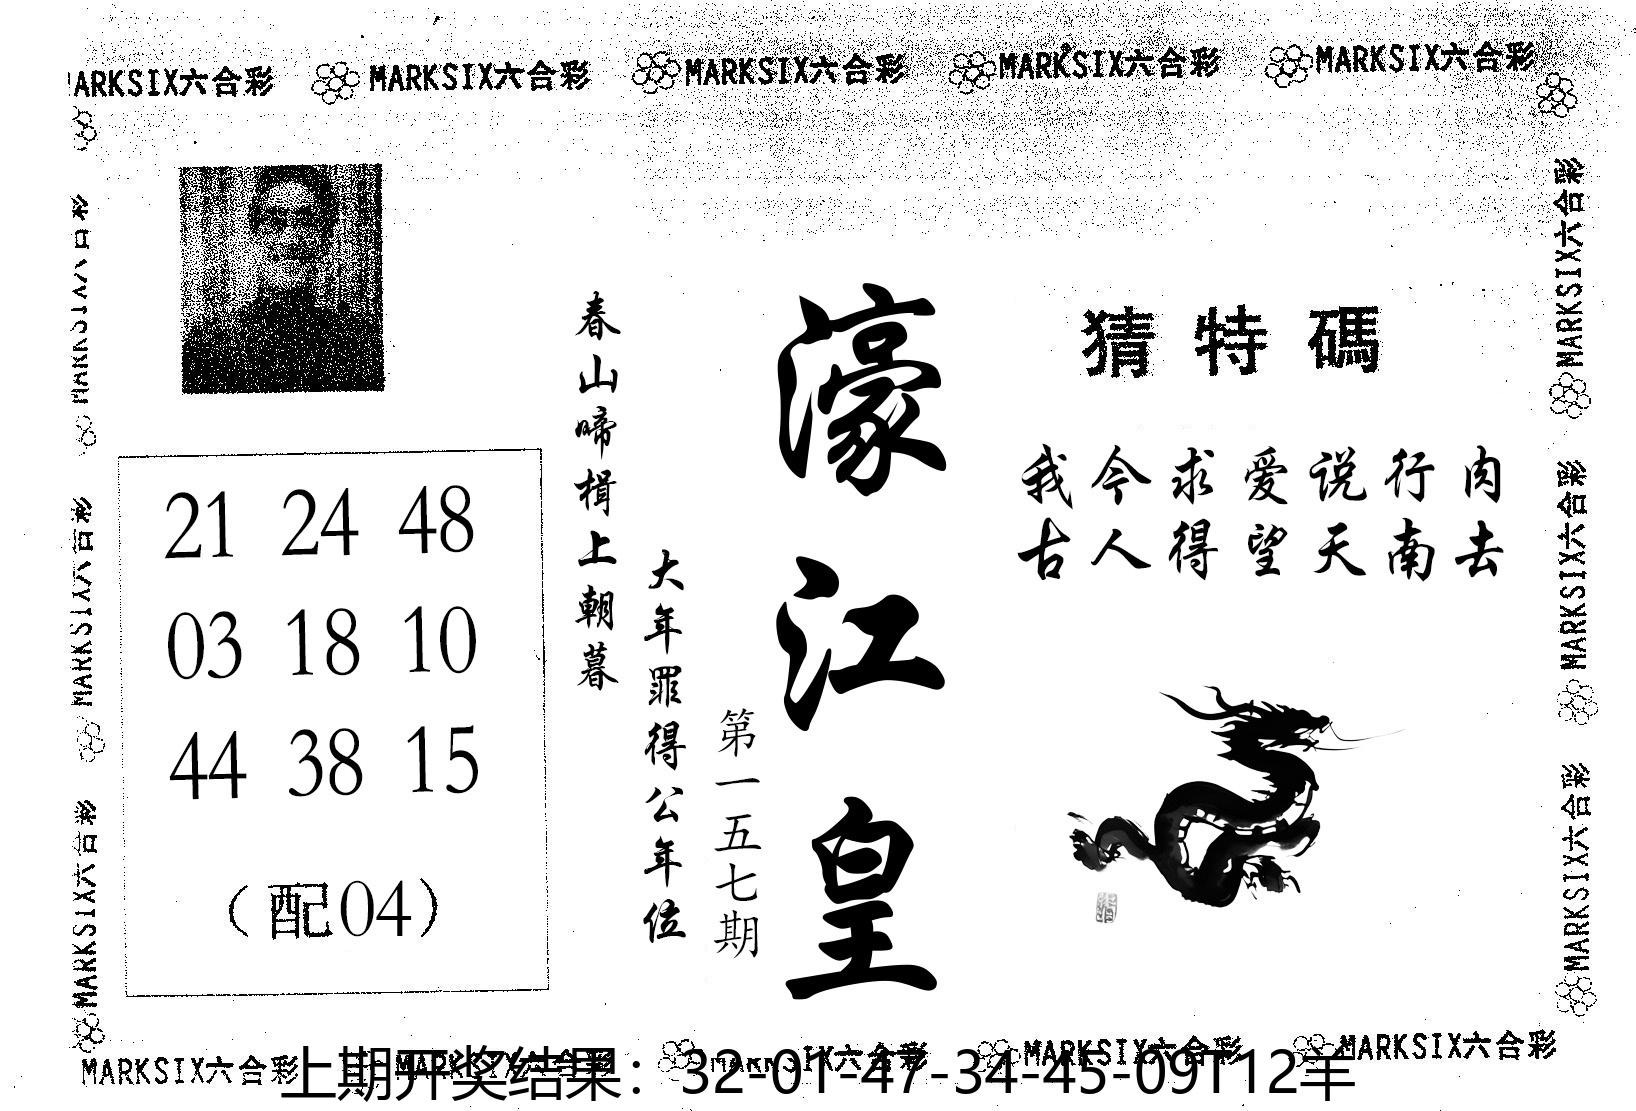 MARKSIX六合彩 MARKSIX六合彩 MARKSIX六合彩 MARKSIX六合彩 MARKSIX六合彩
猜特碼
我今求爱说行肉
古人得望天南去
濠江皇
第一五七期
大年罪得公年位
春山啼楫上朝暮
21 24 48
03 18 10
44 38 15
（配04）
MARKSIX六合彩
MARKSIX六合彩
MARKSIX六合彩
MARKSIX六合彩
MARKSIX六合彩
MARKSIX六合彩 MARKSIX六合彩 MARKSIX六合彩 MARKSIX六合彩 MARKSIX六合彩
上期开奖结果：32-01-47-34-45-09T12羊